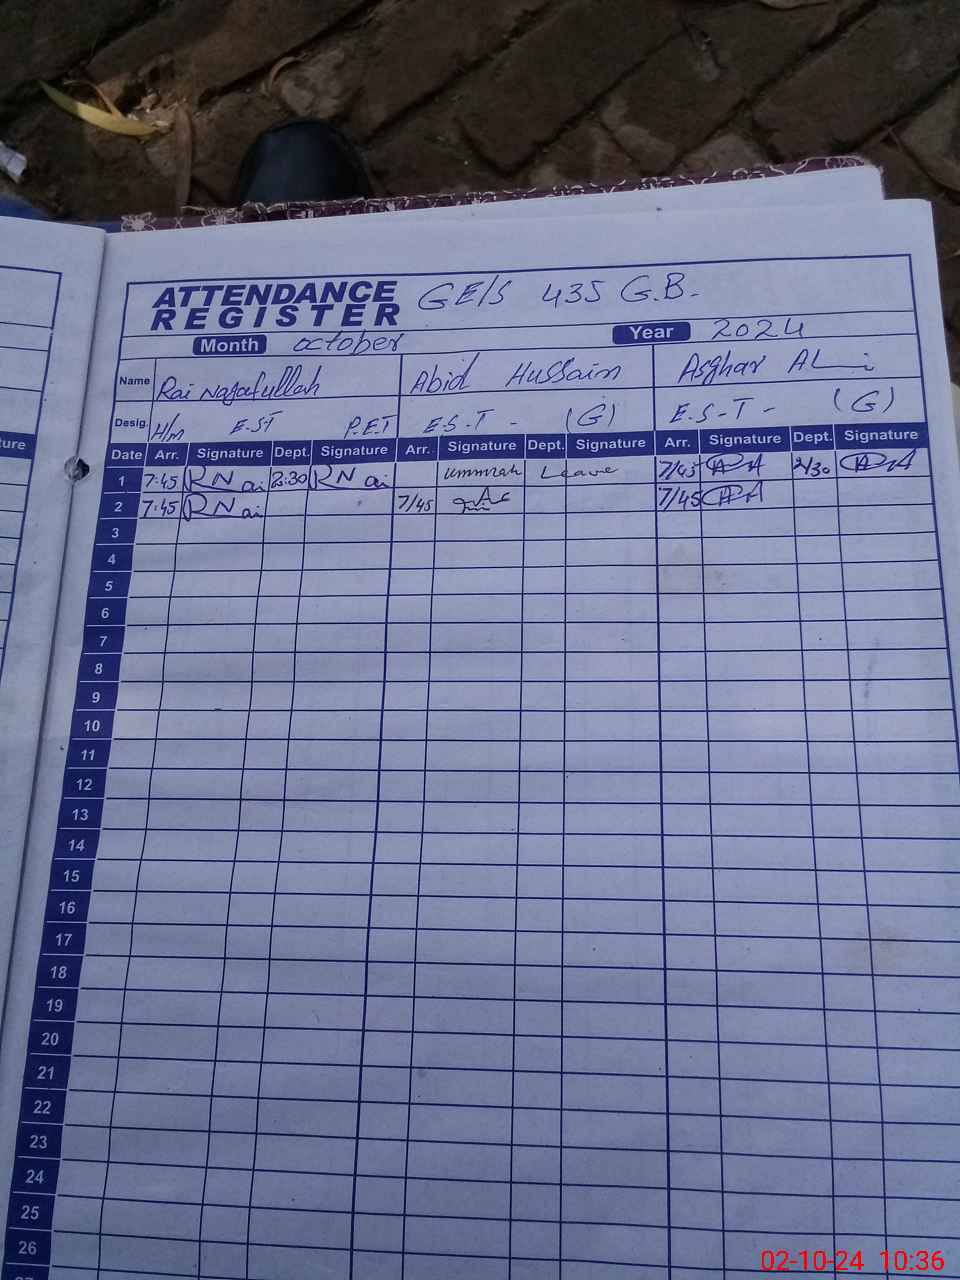 ATTENDANCE REGISTER GE/S 435 G.B.
Month October Year 2024
Name Rai Najafullah Abid Hussain Asghar Ali
Desig. H/M E.S.T P.E.T E.S.T - (G) E.S.T - (G)
ture Date Arr. Signature Dept. Signature Arr. Signature Dept. Signature Arr. Signature Dept. Signature
1 7:45 RN ai 2:30 RN ai ummrah Leave 7/45 2/30
2 7:45 RN ai 7/45 7/45
3
4
5
6
7
8
9
10
11
12
13
14
15
16
17
18
19
20
21
22
23
24
25
26
27
02-10-24 10:36